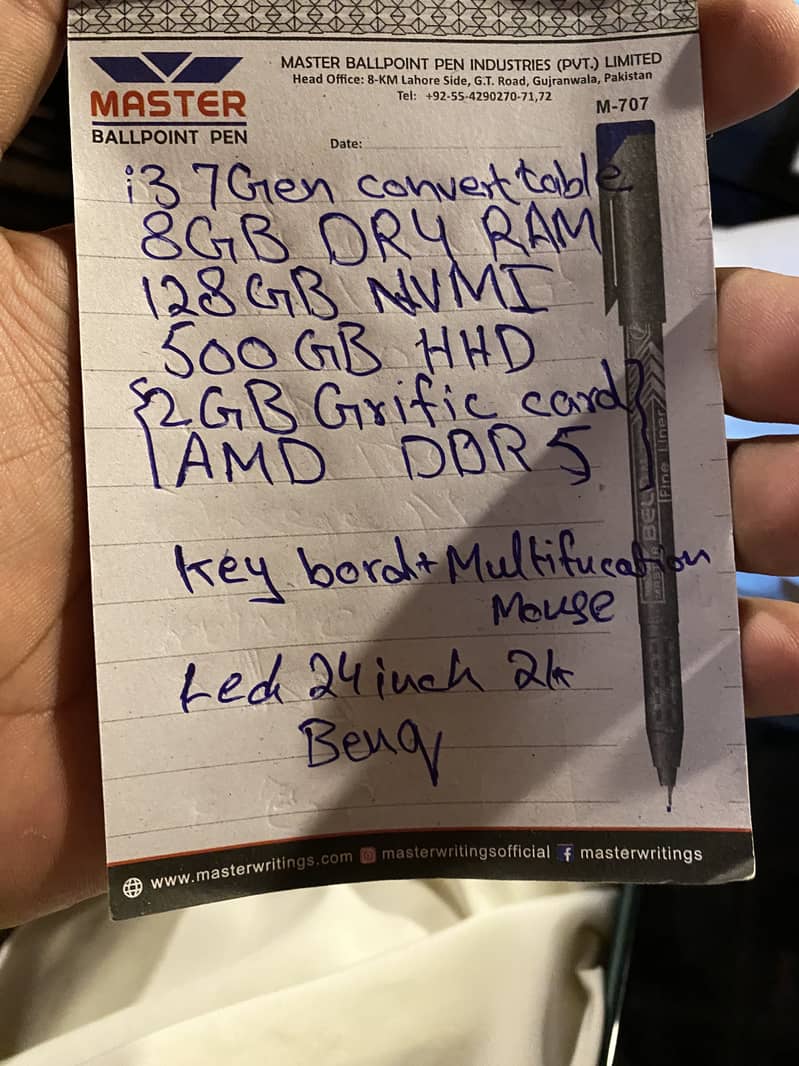 MASTER
BALLPOINT PEN
MASTER BALLPOINT PEN INDUSTRIES (PVT.) LIMITED
Head Office: 8-KM Lahore Side, G.T. Road, Gujranwala, Pakistan
Tel: +92-55-4290270-71,72
M-707
Date:
i3 7Gen convert table
8GB DR4 RAM
128GB NVMI
500GB HHD
{2GB Grific card}
AMD DDR5
Key bord+Multifucation
Mouse
Led 24 inch 2k
Benq
Fine Liner
www.masterwritings.com masterwritingsofficial masterwritings